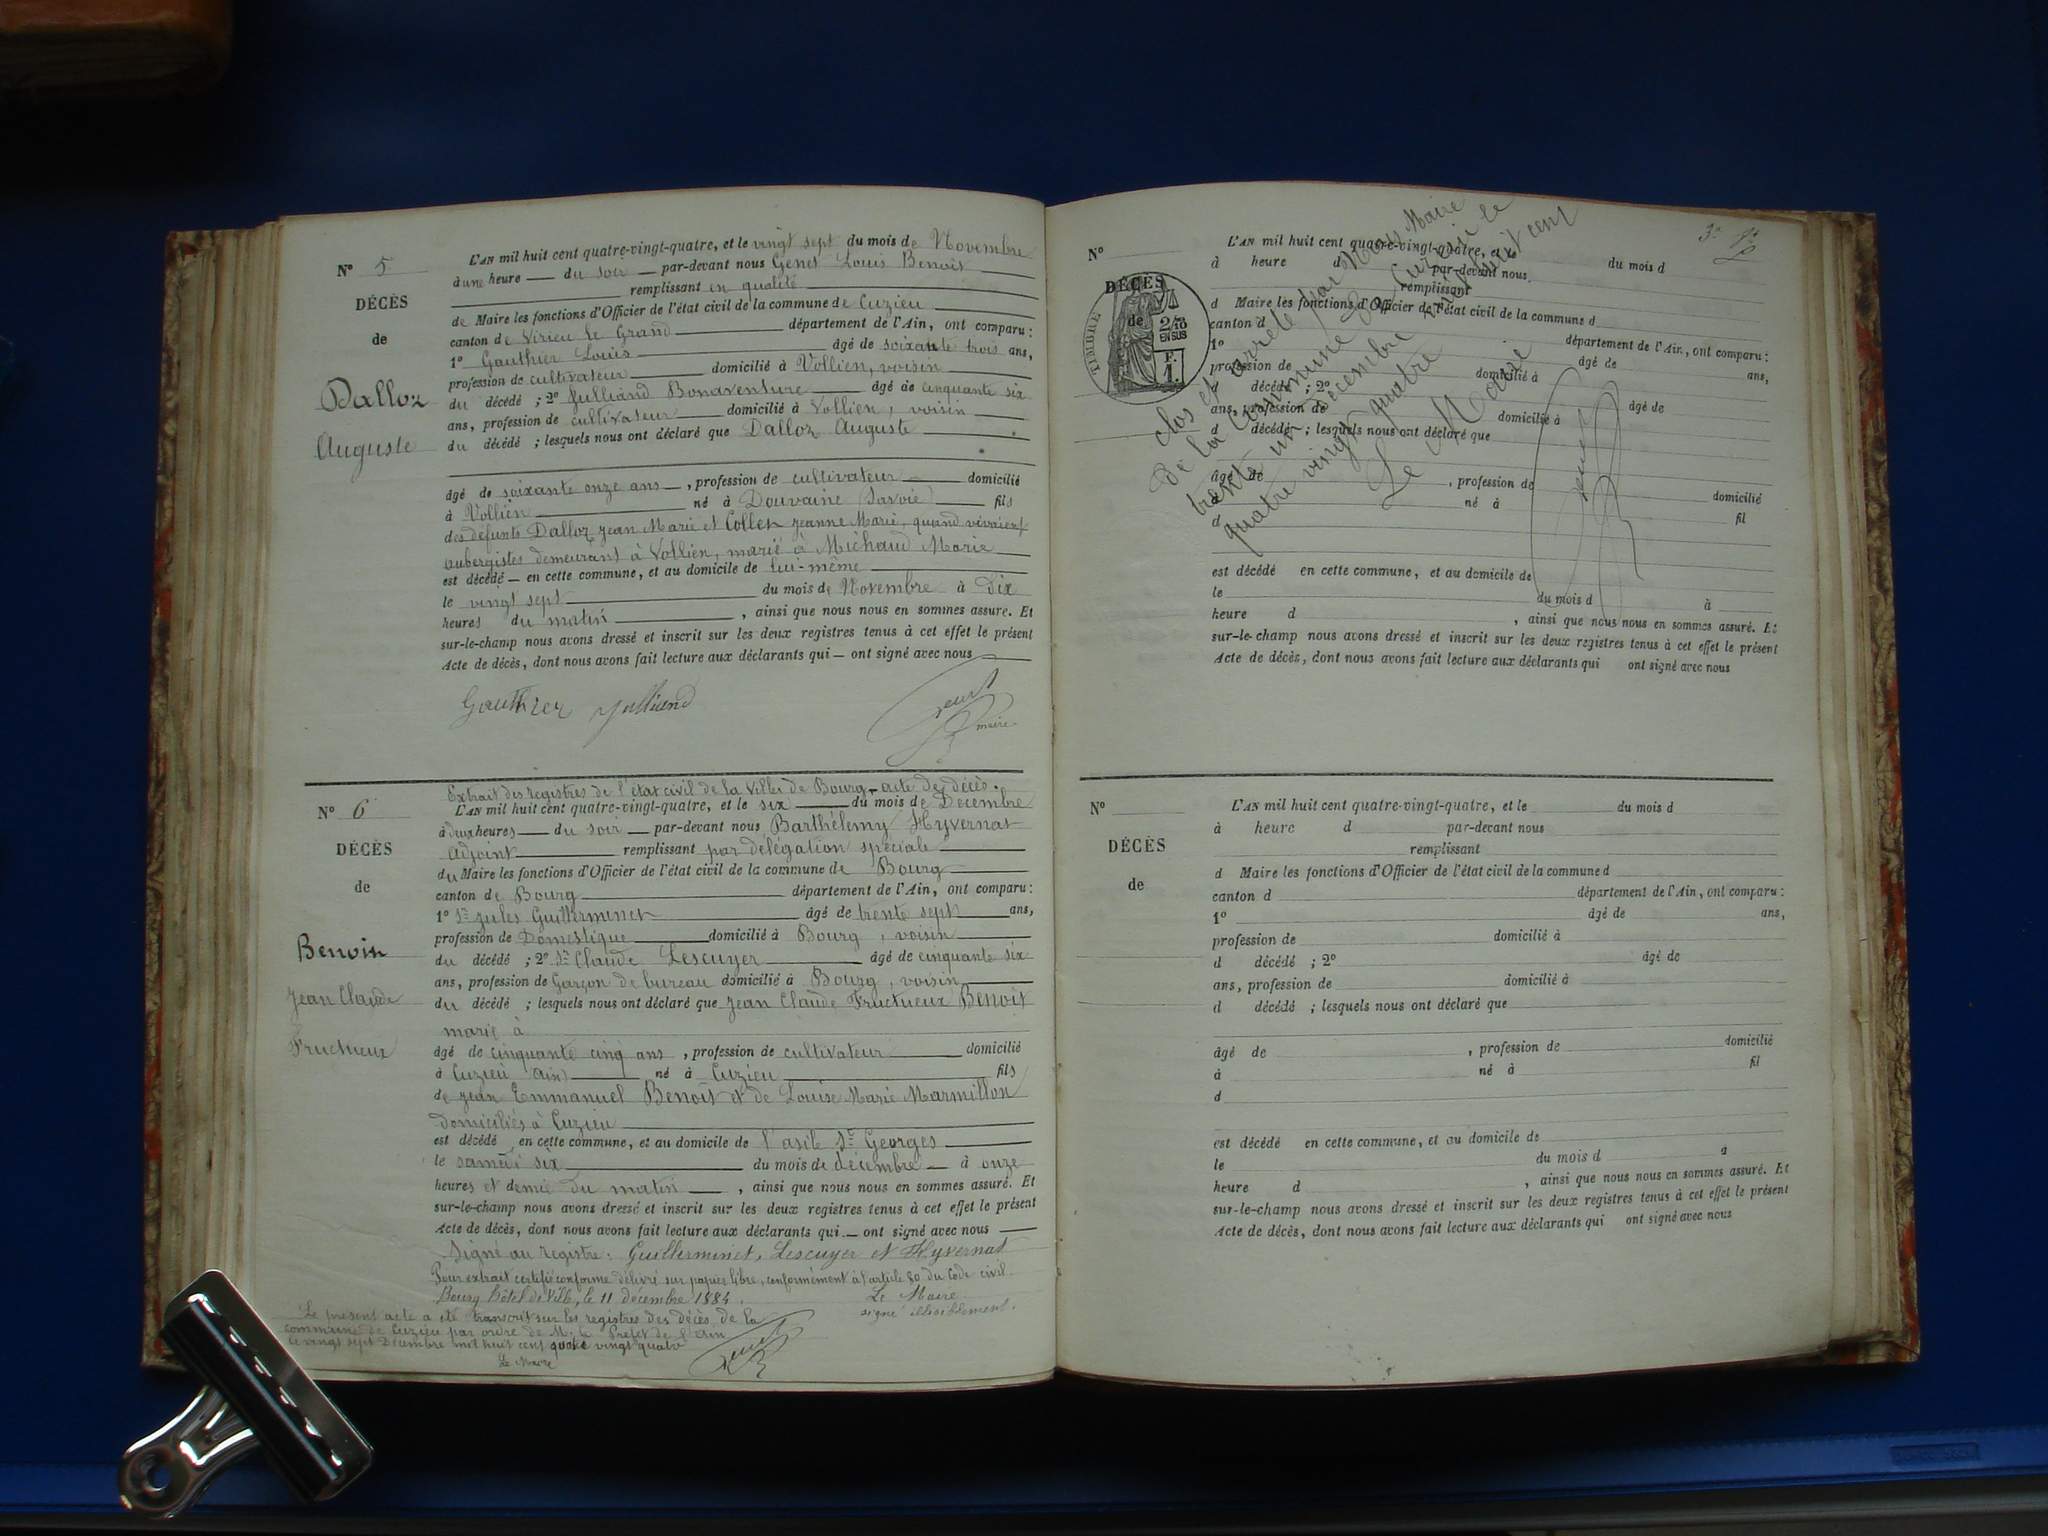 N° 5
DÉCÈS
de
Dalloz
Auguste
L'AN mil huit cent quatre-vingt-quatre, et le vingt sept du mois de Novembre
à une heure — du soir — par-devant nous Genet Louis Benoit
remplissant en qualité
de Maire les fonctions d'Officier de l'état civil de la commune de Cuzieu
canton de Virieu le Grand département de l'Ain, ont comparu :
1° Gauthier Louis âgé de soixante trois ans,
profession de cultivateur domicilié à Vollien, voisin
du décédé ; 2° Julliand Bonaventure âgé de cinquante six
ans, profession de cultivateur domicilié à Vollien, voisin
du décédé ; lesquels nous ont déclaré que Dalloz Auguste
âgé de soixante onze ans —, profession de cultivateur — domicilié
à Vollien né à Douvaine (Savoie) fils
des défunts Dalloz Jean Marie et Collet Jeanne Marie, quand vivaient
aubergistes demeurant à Vollien, marié à Michaud Marie
est décédé — en cette commune, et au domicile de lui-même
le vingt sept du mois de Novembre à dix
heures du matin , ainsi que nous nous en sommes assuré. Et
sur-le-champ nous avons dressé et inscrit sur les deux registres tenus à cet effet le présent
Acte de décès, dont nous avons fait lecture aux déclarants qui — ont signé avec nous
Gauthier Julliand Genet
maire
N° 6
DÉCÈS
de
Benoit
Jean Claude
Fructueux
Extrait des registres de l'état civil de la Ville de Bourg - acte de décès.
L'AN mil huit cent quatre-vingt-quatre, et le six du mois de Décembre
à deux heures — du soir — par-devant nous Barthélemy Hyvernat
adjoint remplissant par délégation spéciale
du Maire les fonctions d'Officier de l'état civil de la commune de Bourg
canton de Bourg département de l'Ain, ont comparu :
1° Sr Jules Guillerminet âgé de trente sept ans,
profession de Domestique domicilié à Bourg, voisin
du décédé ; 2° Sr Claude Lescuyer âgé de cinquante six
ans, profession de Garçon de bureau domicilié à Bourg, voisin
du décédé ; lesquels nous ont déclaré que Jean Claude Fructueux Benoit
marié à
âgé de cinquante cinq ans , profession de cultivateur domicilié
à Cuzieu (Ain) né à Cuzieu fils
de Jean Emmanuel Benoit et de Louise Marie Marmillon
domiciliés à Cuzieu
est décédé en cette commune, et au domicile de l'asile St Georges
le samedi six du mois de décembre — à onze
heures et demie du matin — , ainsi que nous nous en sommes assuré. Et
sur-le-champ nous avons dressé et inscrit sur les deux registres tenus à cet effet le présent
Acte de décès, dont nous avons fait lecture aux déclarants qui — ont signé avec nous
Signé au registre : Guillerminet, Lescuyer et Hyvernat
Pour extrait certifié conforme délivré sur papier libre, conformément à l'article 80 du Code civil.
Bourg hôtel de Ville, le 11 décembre 1884. Le Maire
signé illisiblement.
Le présent acte a été transcrit sur les registres des décès de la
commune de Cuzieu par ordre de Mr le Préfet de l'Ain
le vingt sept Décembre mil huit cent quatre vingt quatre
Le Maire Genet
N°
DÉCÈS
de
TIMBRE
2/10
EN SUS
F.
1.
L'AN mil huit cent quatre-vingt-quatre, et le du mois d
à heure d par-devant nous
remplissant
d Maire les fonctions d'Officier de l'état civil de la commune d
canton d département de l'Ain, ont comparu :
1° âgé de ans,
profession de domicilié à
d décédé ; 2° âgé de
ans, profession de domicilié à
d décédé ; lesquels nous ont déclaré que
âgé de , profession de domicilié
à né à fil
d
est décédé en cette commune, et au domicile de
le du mois d à
heure d , ainsi que nous nous en sommes assuré. Et
sur-le-champ nous avons dressé et inscrit sur les deux registres tenus à cet effet le présent
Acte de décès, dont nous avons fait lecture aux déclarants qui ont signé avec nous
Clos et arrêté par Nous Maire
de la Commune de Cuzieu le
trente un Décembre mil huit cent
quatre vingt quatre
Le Maire
Genet
N°
DÉCÈS
de
L'AN mil huit cent quatre-vingt-quatre, et le du mois d
à heure d par-devant nous
remplissant
d Maire les fonctions d'Officier de l'état civil de la commune d
canton d département de l'Ain, ont comparu :
1° âgé de ans,
profession de domicilié à
d décédé ; 2° âgé de
ans, profession de domicilié à
d décédé ; lesquels nous ont déclaré que
âgé de , profession de domicilié
à né à fil
d
est décédé en cette commune, et au domicile de
le du mois d à
heure d , ainsi que nous nous en sommes assuré. Et
sur-le-champ nous avons dressé et inscrit sur les deux registres tenus à cet effet le présent
Acte de décès, dont nous avons fait lecture aux déclarants qui ont signé avec nous